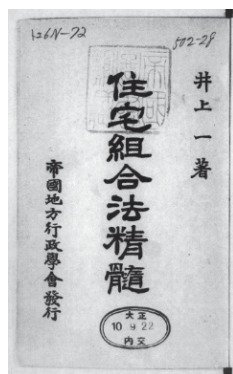 126N-72
502-29
井上一著
住宅組合法精髓
帝國地方行政學會發行
大正
10 9 22
内交